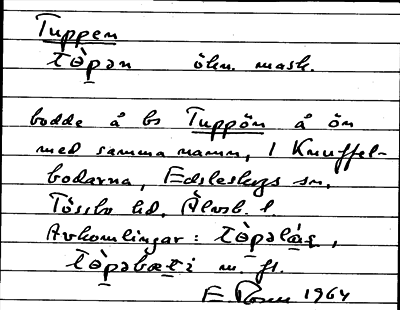 Tuppen
tòpan ökn. mask.
bodde å bs Tuppön å ön
med samma namn, i Knuffel-
bodarna, Edsleskogs sn,
Tössbo hd, Älvsb. l.
Avkomlingar: tòpalás,
tòpabæti m. fl.
E. Rosen 1964